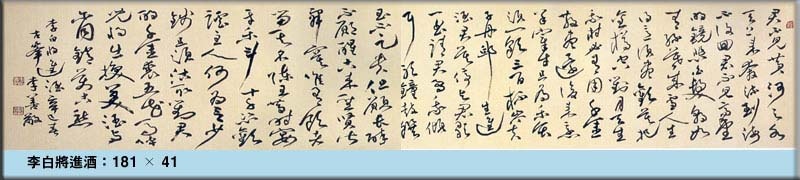 君不見黃河之水
天上來奔流到海
不復回君不見高堂
明鏡悲白髮朝如
青絲暮成雪人生
得意須盡歡莫
金樽空對月天生
我材必有用千金
散盡還復來烹
羊宰牛且為樂會
須一飲三百杯岑夫
子丹邱生進
酒君莫停與君歌
一曲請君為我傾
耳聽鐘鼓饌
玉不足貴但願長醉
不願醒古來聖賢
寂寞唯有飲者
留其名陳王昔時宴
平樂斗酒十千恣歡
謔主人何為言少
錢徑須沽取對君
酌千金裘五花馬
呼兒將出換美酒與
爾同銷萬古愁
李白將進酒
李白將進酒：181 × 41